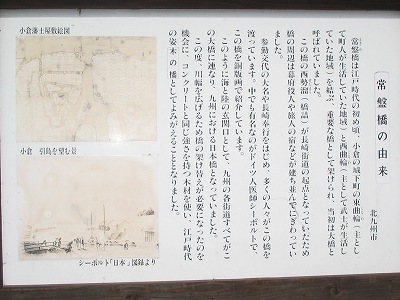 常盤橋の由来
北九州市
常盤橋は江戸時代の初め頃、小倉の城下町の東曲輪(主とし
て町人が生活していた地域)と西曲輪(主として武士が生活し
ていた地域)を結ぶ、重要な橋として架けられ、当初は大橋と
呼ばれていました。
この橋の西勢溜(橋詰)が長崎街道の起点となっていたため
橋の周辺は幕府役人や旅人の宿などが建ち並んでにぎわってい
ました。
参勤交代の大名や長崎奉行をはじめ、多くの人々がこの橋を
渡っています。中でも有名なのがドイツ人医師シーボルトで、
この橋を銅版画で紹介しています。
このように海と陸の玄関口として、九州の各街道すべてがこ
の大橋に連なり、九州における日本橋となっていました。
この度、川幅を広げるため橋の架け替えが必要になったのを
機会に、コンクリートと同じ強さを持つ木材を使い、江戸時代
の姿木の橋としてよみがえることとなりました。
小倉藩士屋敷絵図
小倉 引島を望む景
シーボルト「日本」図録より